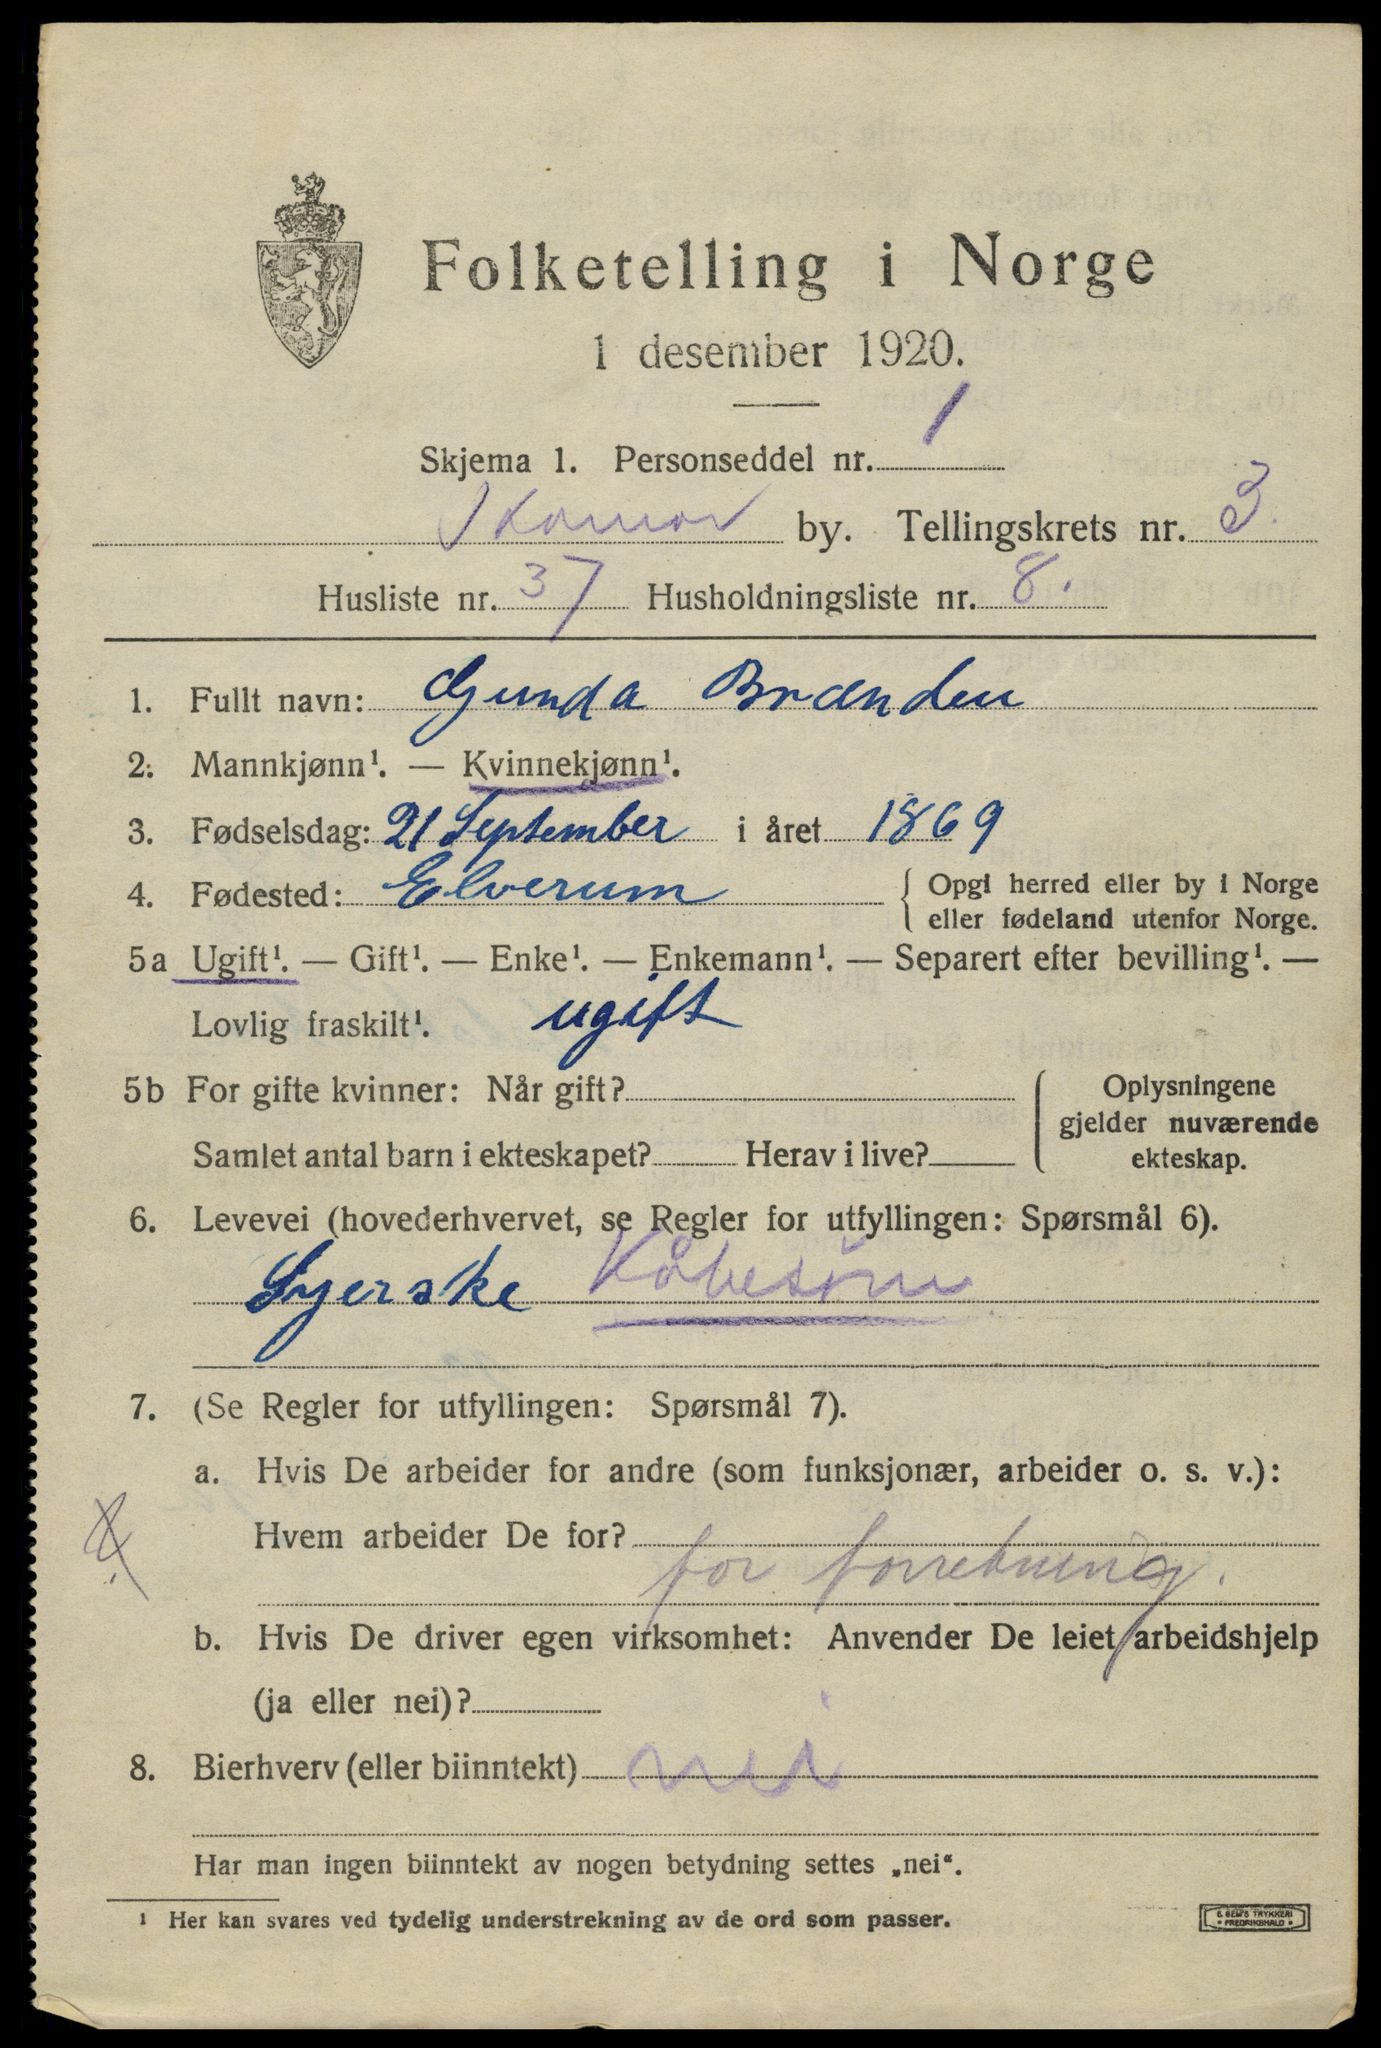 Folketelling i Norge
1 desember 1920.
Skjema 1. Personseddel nr. 1
Hamar by. Tellingskrets nr. 3.
Husliste nr. 37 Husholdningsliste nr. 8.
1. Fullt navn: Gunda Brænden
2. Mannkjønn¹. — Kvinnekjønn¹.
3. Fødselsdag: 21 September i året 1869
4. Fødested: Elverum { Opgi herred eller by i Norge
eller fødeland utenfor Norge.
5a Ugift¹. — Gift¹. — Enke¹. — Enkemann¹. — Separert efter bevilling¹. —
Lovlig fraskilt¹. ugift
5b For gifte kvinner: Når gift? { Oplysningene
gjelder nuværende
Samlet antal barn i ekteskapet? Herav i live? ekteskap.
6. Levevei (hovederhvervet, se Regler for utfyllingen: Spørsmål 6).
Syerske Kåbesöm
7. (Se Regler for utfyllingen: Spørsmål 7).
a. Hvis De arbeider for andre (som funksjonær, arbeider o. s. v.):
Hvem arbeider De for?
for forretning.
b. Hvis De driver egen virksomhet: Anvender De leiet arbeidshjelp
(ja eller nei)?
8. Bierhverv (eller biinntekt) nei
Har man ingen biinntekt av nogen betydning settes „nei“.
¹ Her kan svares ved tydelig understrekning av de ord som passer.
E. SEM'S TRYKKERI
• FREDRIKSHALD •